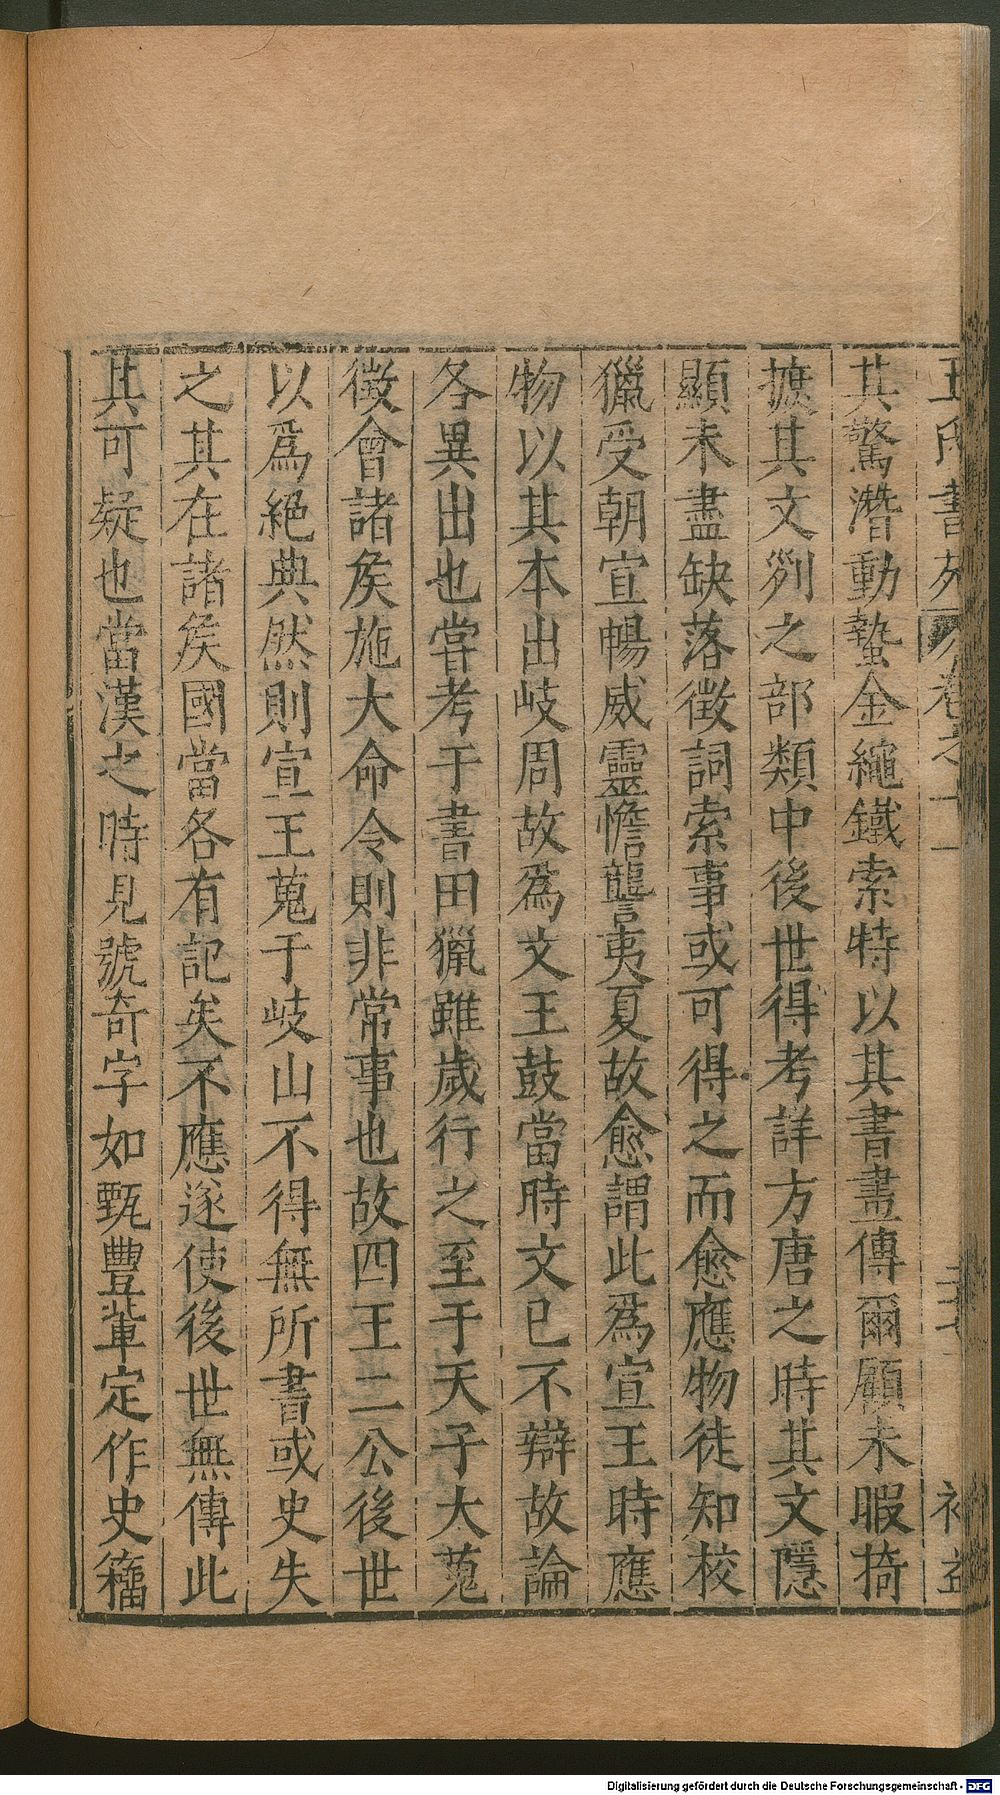 王氏書苑 卷之十一
其驚潛動蟄金繩鐵索特以其書畫傳爾顧未暇掎
摭其文列之部類中後世得考詳方唐之時其文隱
顯未盡缺落徴詞索事或可得之而愈應物徒知校
獵受朝宣暢威靈憺讋夷夏故愈謂此爲宣王時應
物以其本出岐周故爲文王鼓當時文已不辯故論
各異出也甞考于書田獵雖歲行之至于天子大蒐
徴會諸矦施大命令則非常事也故四王二公後世
以爲絕典然則宣王蒐于岐山不得無所書或史失
之其在諸矦國當各有記矣不應遂使後世無傳此
其可疑也當漢之時見號奇字如甄豐輩定作史籒
Digitalisierung gefördert durch die Deutsche Forschungsgemeinschaft - DFG